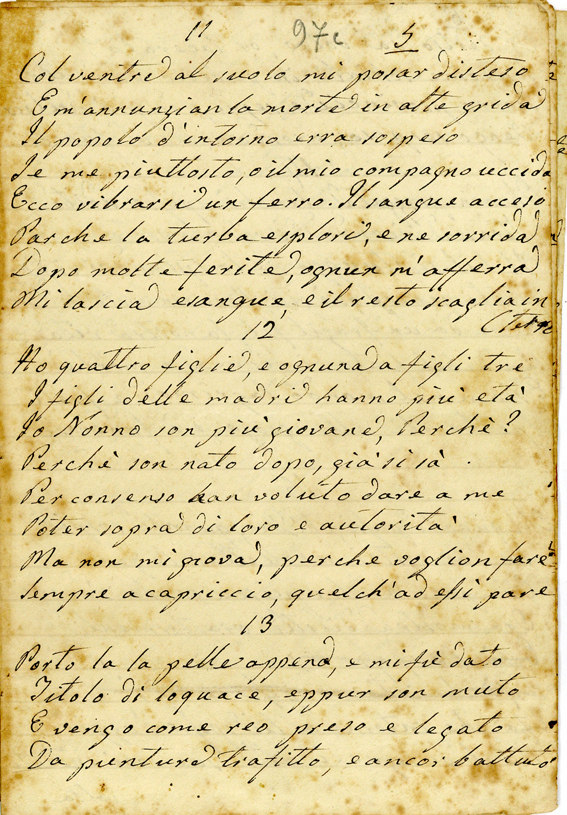 11 97c 5
Col ventre al suolo mi posar disteso
E m'annunzian la morte in alte grida
Il popolo d'intorno erra sospeso
Se me piuttosto, o il mio compagno uccida
Ecco vibrarsi un ferro. Il sangue acceso
Par che la turba esplori, e ne sorrida
Dopo molte ferite, ognun m'afferra
Mi lascia esangue, e il resto scaglia in
12
Ho quattro figlie, e ognuna a figli tre
I figli delle madri hanno più età
Io Nonno son più giovane, Perchè?
Perchè son nato dopo, già si sà.
Per consenso han voluto dare a me
Poter sopra di loro e autorità
Ma non mi giova, perche voglion fare
Sempre a capriccio, quelch'ad essi pare
13
Porto la la pelle appena, e mi fù dato
Titolo di loquace, eppur son muto
E vengo come reo preso e legato
Da pienture trafitto, e ancor battuto